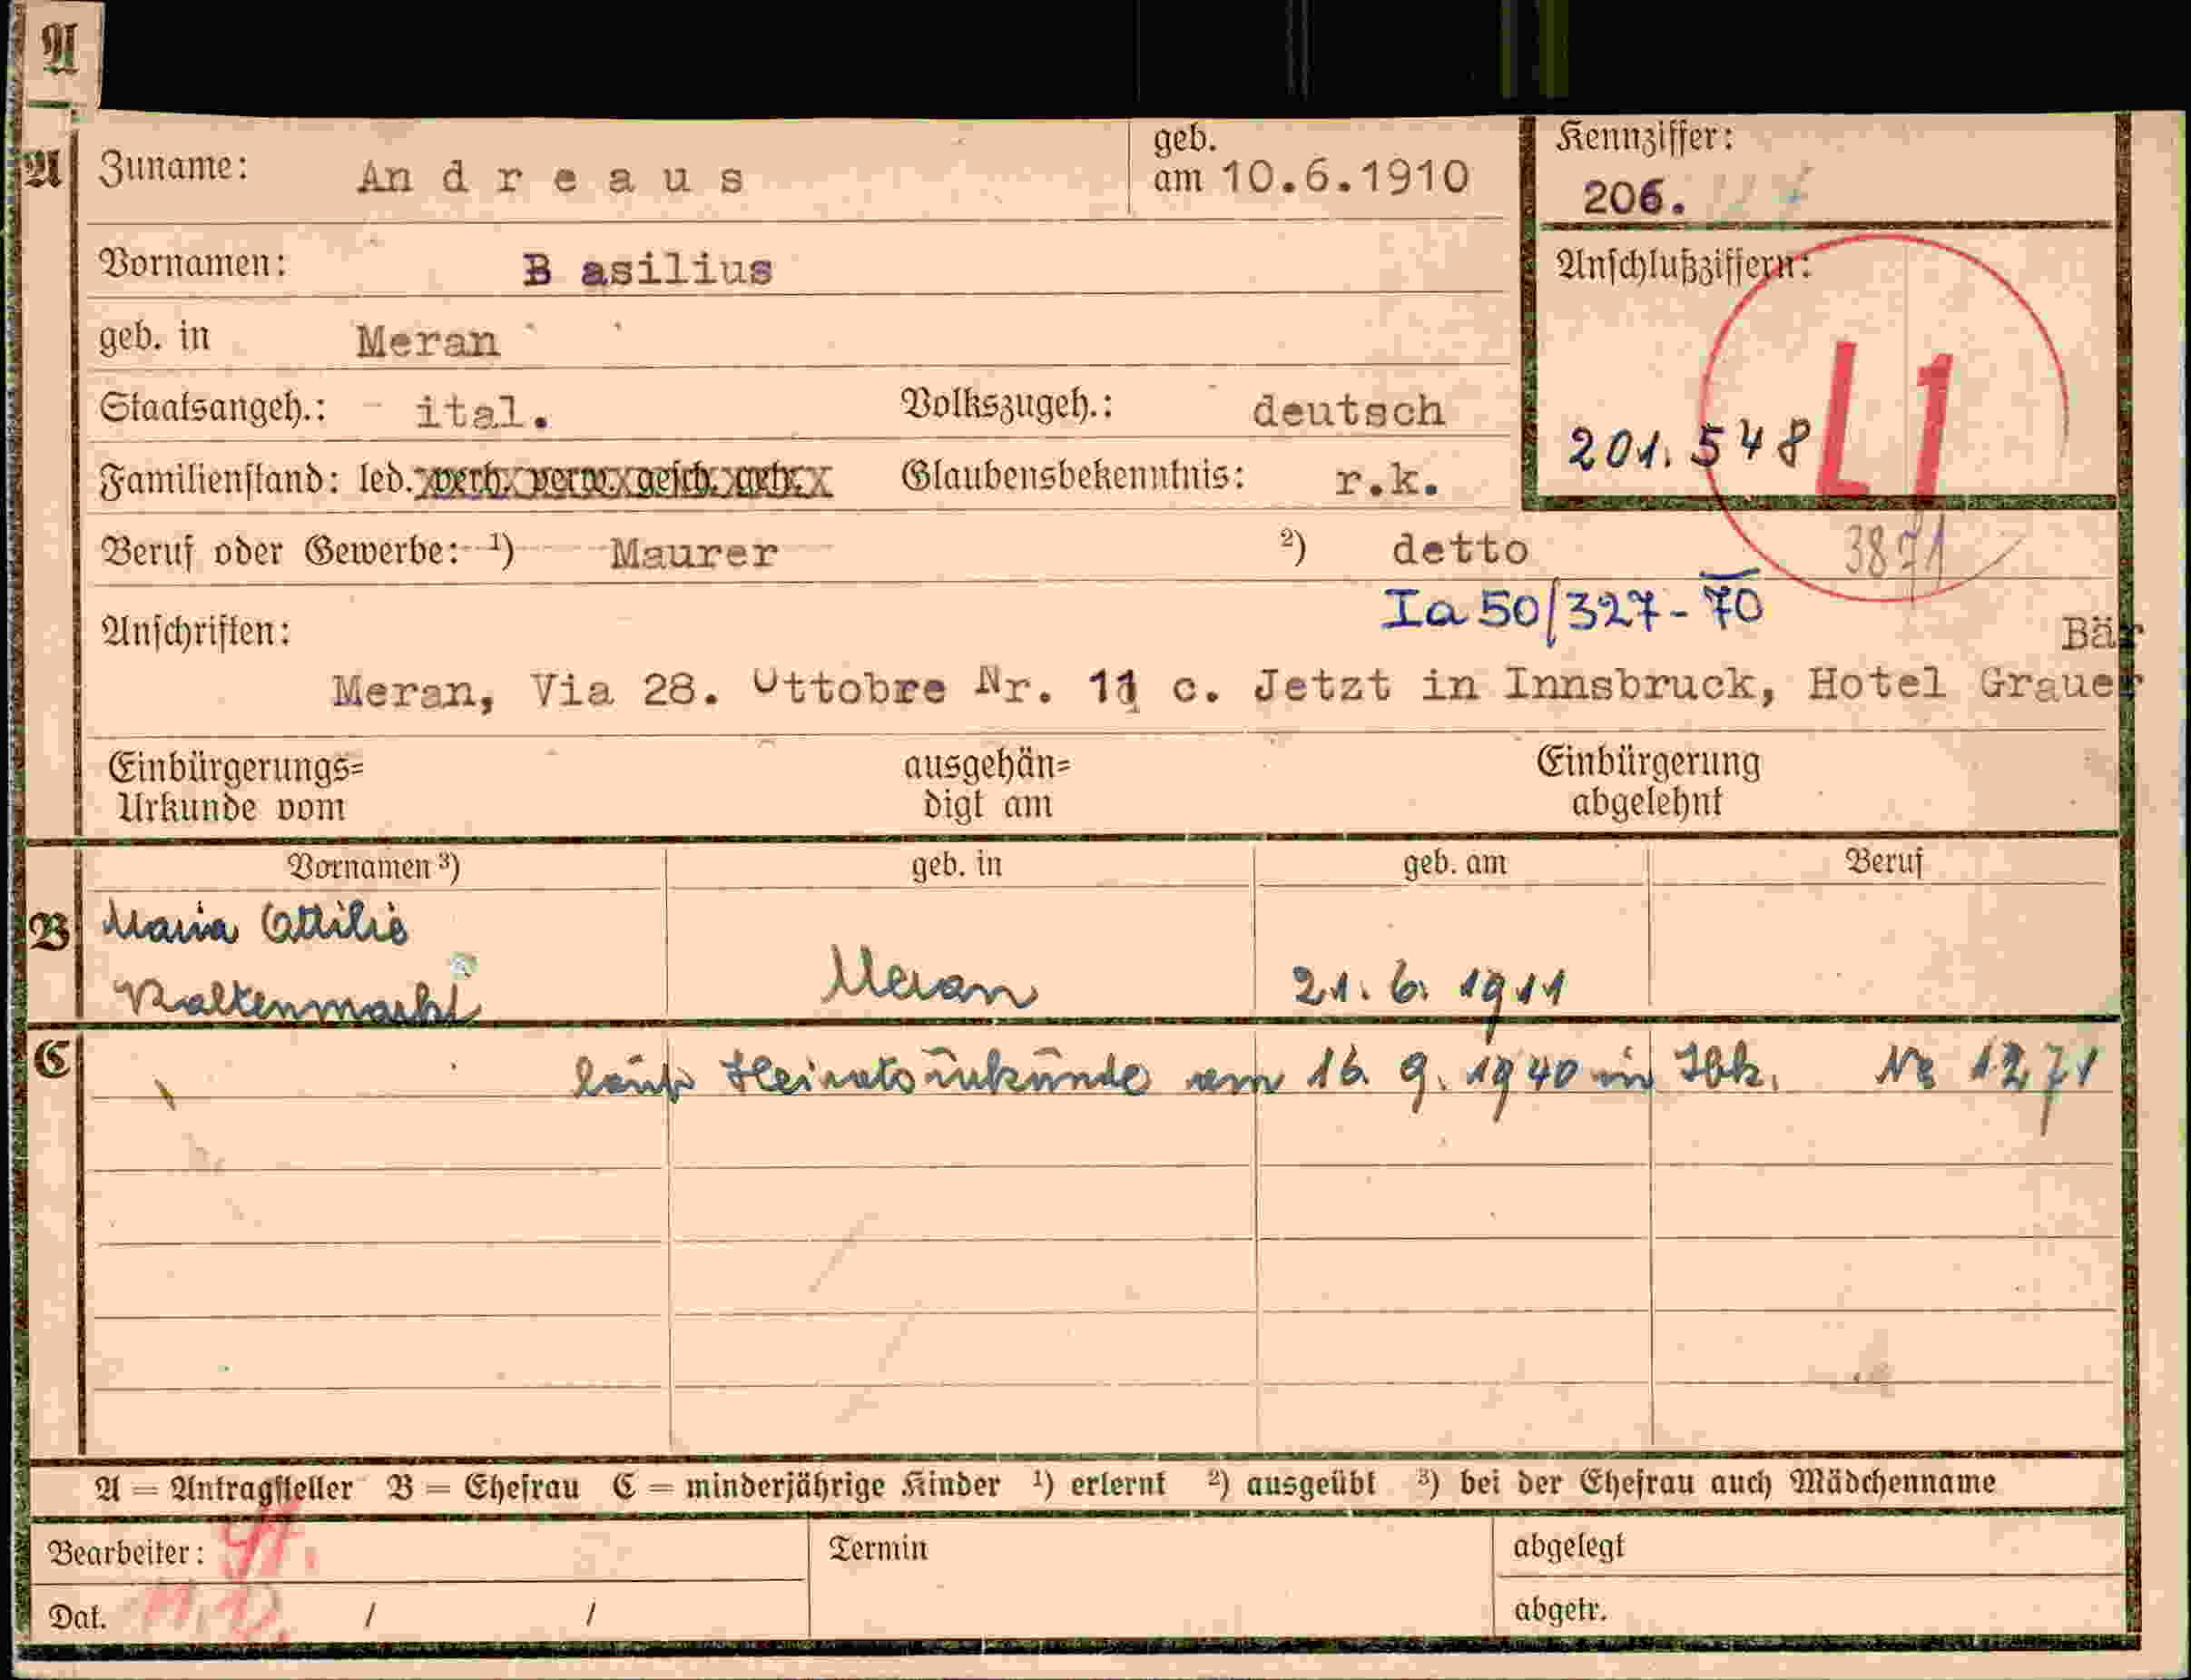 A
A Zuname: Andreaus geb. am 10.6.1910 Kennziffer: 206.
Vornamen: B asilius Anschlußziffern:
geb. in Meran
Staatsangeh.: - ital. Volkszugeh.: deutsch 201.548 L1
Familienstand: led. verh. verw. gesch. getr. Glaubensbekenntnis: r.k.
Beruf oder Gewerbe: ¹) Maurer ²) detto 3871
Ia 50/327-70
Anschriften: Bär
Meran, Via 28. Ottobre Nr. 11 c. Jetzt in Innsbruck, Hotel Grauer
Einbürgerungs= ausgehän= Einbürgerung
Urkunde vom digt am abgelehnt
Vornamen ³) geb. in geb. am Beruf
B Maria Ottilie
Kaltenmarkt Meran 21. 6. 1911
C laut Heiratsurkunde vom 16. 9. 1940 in Ibk. Nr 1271
A = Antragsteller B = Ehefrau C = minderjährige Kinder ¹) erlernt ²) ausgeübt ³) bei der Ehefrau auch Mädchenname
Bearbeiter: Termin abgelegt
Dat. 11.12. / / abgetr.